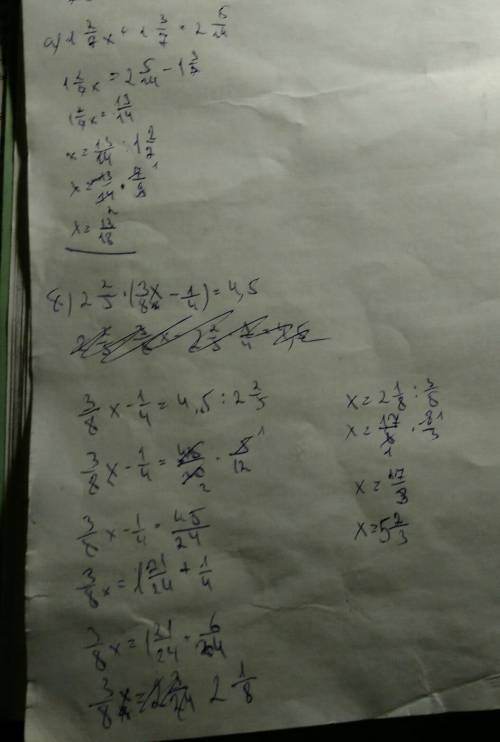 а) 1 2/7 x + 1 3/7 = 2 5/14
1 2/7 x = 2 5/14 - 1 3/7
1 2/7 x = 13/14
x = 13/14 : 1 2/7
x = 13/14 · 7/9 1
x = 13/18
2 2/5 · (3/8 x - 1/4) = 4,5
3/8 x - 1/4 = 4,5 : 2 2/5
3/8 x - 1/4 = 45/10 2 · 5/12 1
3/8 x - 1/4 = 45/24
3/8 x = 1 21/24 + 1/4
3/8 x = 1 21/24 + 6/24
3/8 x = 2 1/8
x = 2 1/8 : 3/8
x = 17/8 1 · 8/3 1
x = 17/3
x = 5 2/3